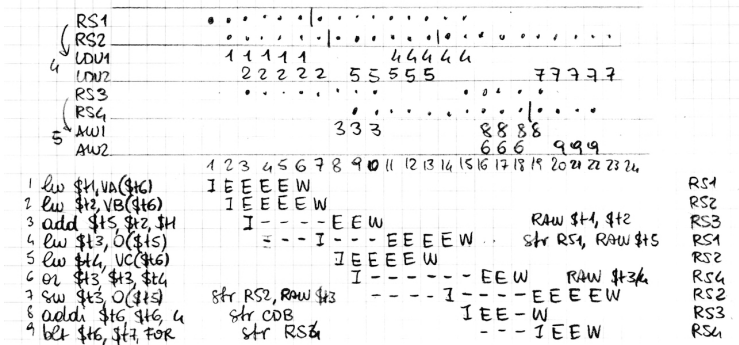 RS1
RS2
4 LDU1 1 1 1 1 1 4 4 4 4 4
LDU2 2 2 2 2 2 2 5 5 5 5 5 7 7 7 7 7
RS3
RS4
5 ALU1 3 3 3 8 8 8 8
ALU2 6 6 6 9 9 9
1 2 3 4 5 6 7 8 9 10 11 12 13 14 15 16 17 18 19 20 21 22 23 24
1 lw $t1, VA($t6) I E E E E W RS1
2 lw $t2, VB($t6) I E E E E W RS2
3 add $t5, $t2, $t1 I - - - - E E W RAW $t1, $t2 RS3
4 lw $t3, 0($t5) - - - I - - - E E E E W str RS1, RAW $t5 RS1
5 lw $t4, VC($t6) I E E E E W RS2
6 or $t3, $t3, $t4 I - - - - - - E E W RAW $t3/4 RS4
7 sw $t3, 0($t5) str RS2, RAW $t3 - - - - I - - - - E E E E W RS2
8 addi $t6, $t6, 4 str CDB I E E - W RS3
9 blt $t6, $t7, FOR str RS4 - - - I E E W RS4